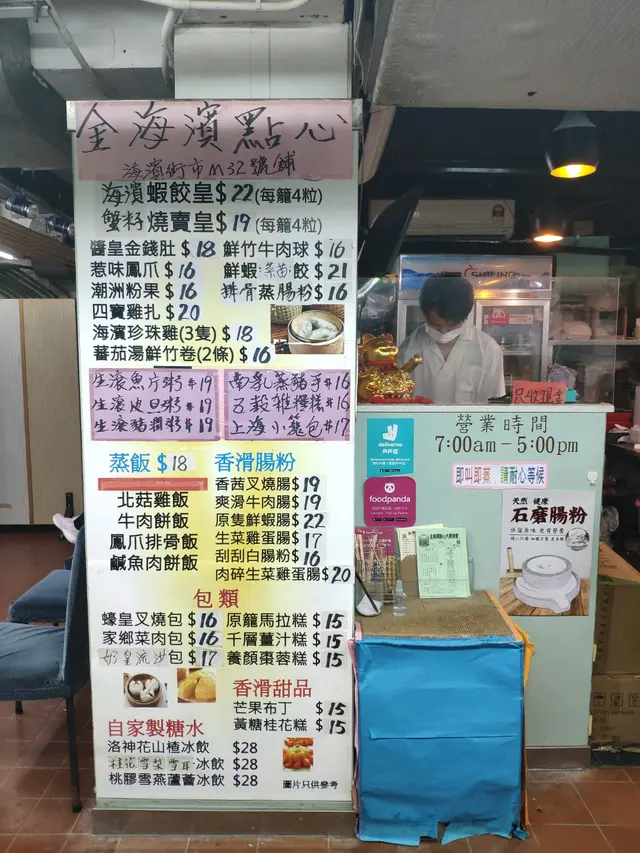 金海濱點心
海濱街市M32號舖
海濱蝦餃皇$22(每籠4粒)
蟹籽燒賣皇$19(每籠4粒)
醬皇金錢肚$18 鮮竹牛肉球$16
惹味鳳爪$16 鮮蝦菜苗餃$21
潮洲粉果$16 排骨蒸腸粉$16
四寶雞扎$20
海濱珍珠雞(3隻)$18
蕃茄湯鮮竹卷(2條)$16
生滾魚片粥$19 南乳蒸豬手$16
生滾皮旦粥$19 五穀雜糧糕$16
生滾豬潤粥$19 上海小籠包$17
蒸飯$18
北菇雞飯
牛肉餅飯
鳳爪排骨飯
鹹魚肉餅飯
香滑腸粉
香茜叉燒腸$19
爽滑牛肉腸$19
原隻鮮蝦腸$22
生菜雞蛋腸$17
刮刮白腸粉$16
肉碎生菜雞蛋腸$20
包類
蠔皇叉燒包$16 原籠馬拉糕$15
家鄉菜肉包$16 千層薑汁糕$15
奶皇流沙包$17 養顏棗蓉糕$15
香滑甜品
芒果布丁$15
黃糖桂花糕$15
自家製糖水
洛神花山楂冰飲 $28
桂花雪梨雪耳冰飲 $28
桃膠雪燕蘆薈冰飲 $28
圖片只供參考
只收現金
營業時間
7:00am-5:00pm
即叫即蒸 請耐心等候
deliveroo
戶戶送
foodpanda
天然 健康
石磨腸粉